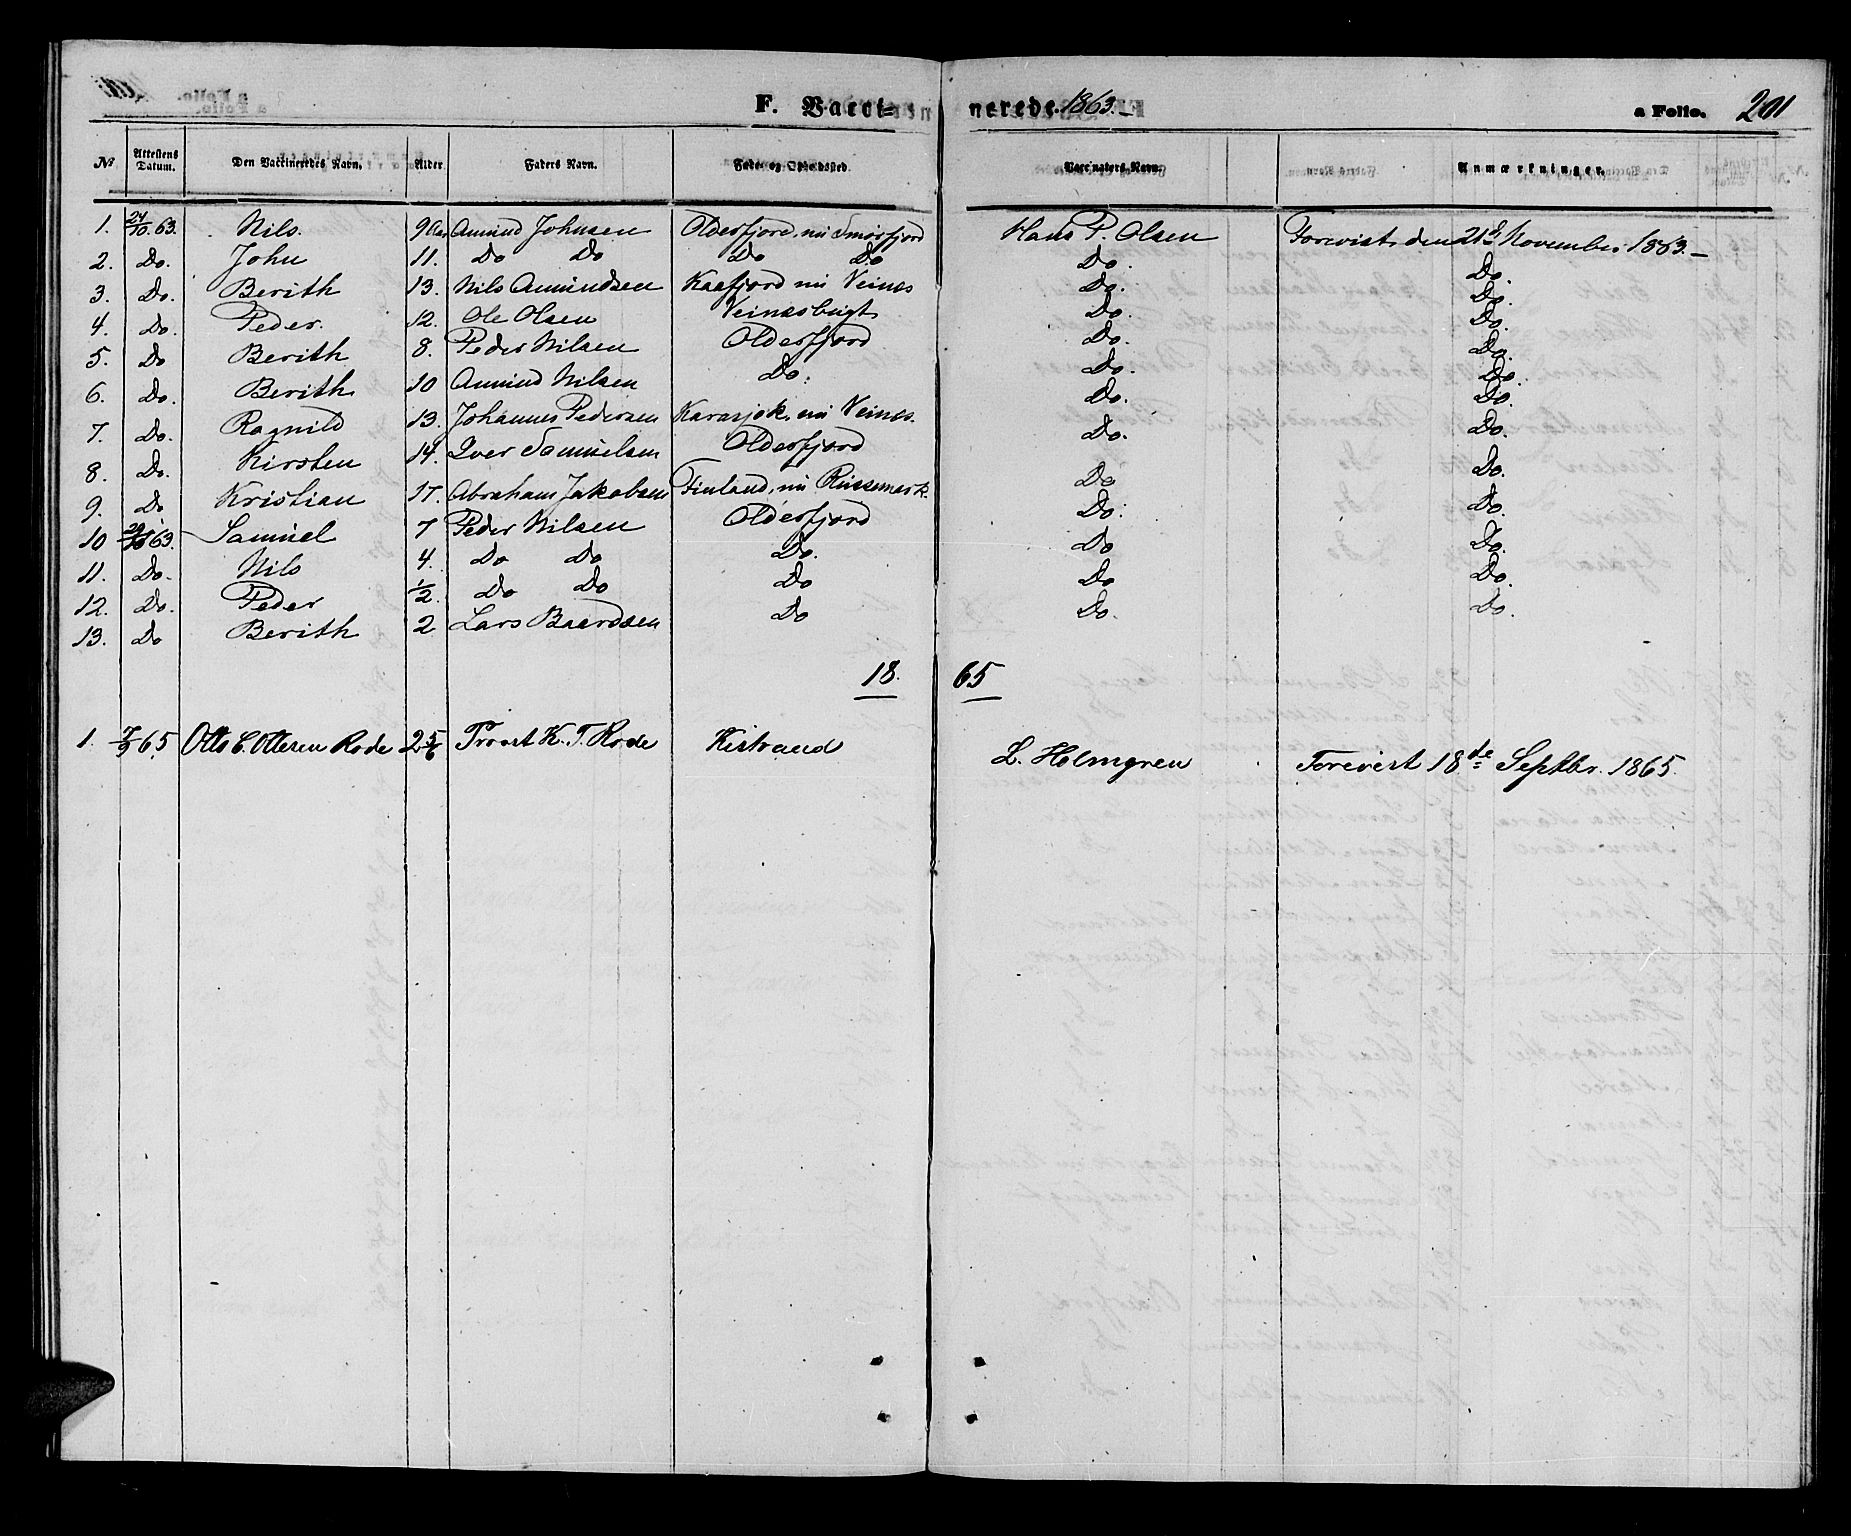 F. Vacci- nerede. 1863.- a Folio. 201
No Attestens Datum. Den Vaccineredes Navn. Alder Faders Navn. Føde- og Opholdssted. Vaccinators Navn. Anmærkninger.
1. 24/10. 63. Nils. 9 Aar Amund Johnsen Oldersfjord, nu Smørfjord Hans P. Olsen Forevist den 21de November 1863.-
2. Do. John 11. Do Do Do Do Do. Do.
3. Do. Berith 13. Nils Amundsen Kaafjord nu Veines Do. Do.
4. Do. Peder. 12. Ole Olsen Veinesbugt Do. Do.
5. Do Berith 8. Peder Nilsen Oldersfjord Do. Do.
6. Do. Berith 10 Amund Nilsen Do. Do. Do.
7. Do. Ragnild 13. Johannes Pedersen Karasjok, nu Veines. Do. Do.
8. Do. Kirsten 14. Iver Samuelsen Oldersfjord Do. Do.
9. Do Kristian 17. Abraham Jakobsen Finland, nu Russemark. Do Do.
10 29/10 63. Samuel 7 Peder Nilsen Oldersfjord Do. Do.
11. Do. Nils 4. Do Do Do. Do Do.
12. Do. Peder 1/2. Do Do Do Do Do.
13. Do Berith 2 Lars Baardsen Do Do. Do.
18. 65
1. 7/9 65. Otto C. Ottesen Rode 2 5/6 Provst K. F. Rode Kistrand L. Holmgren Forevist 18de Septbr. 1865.